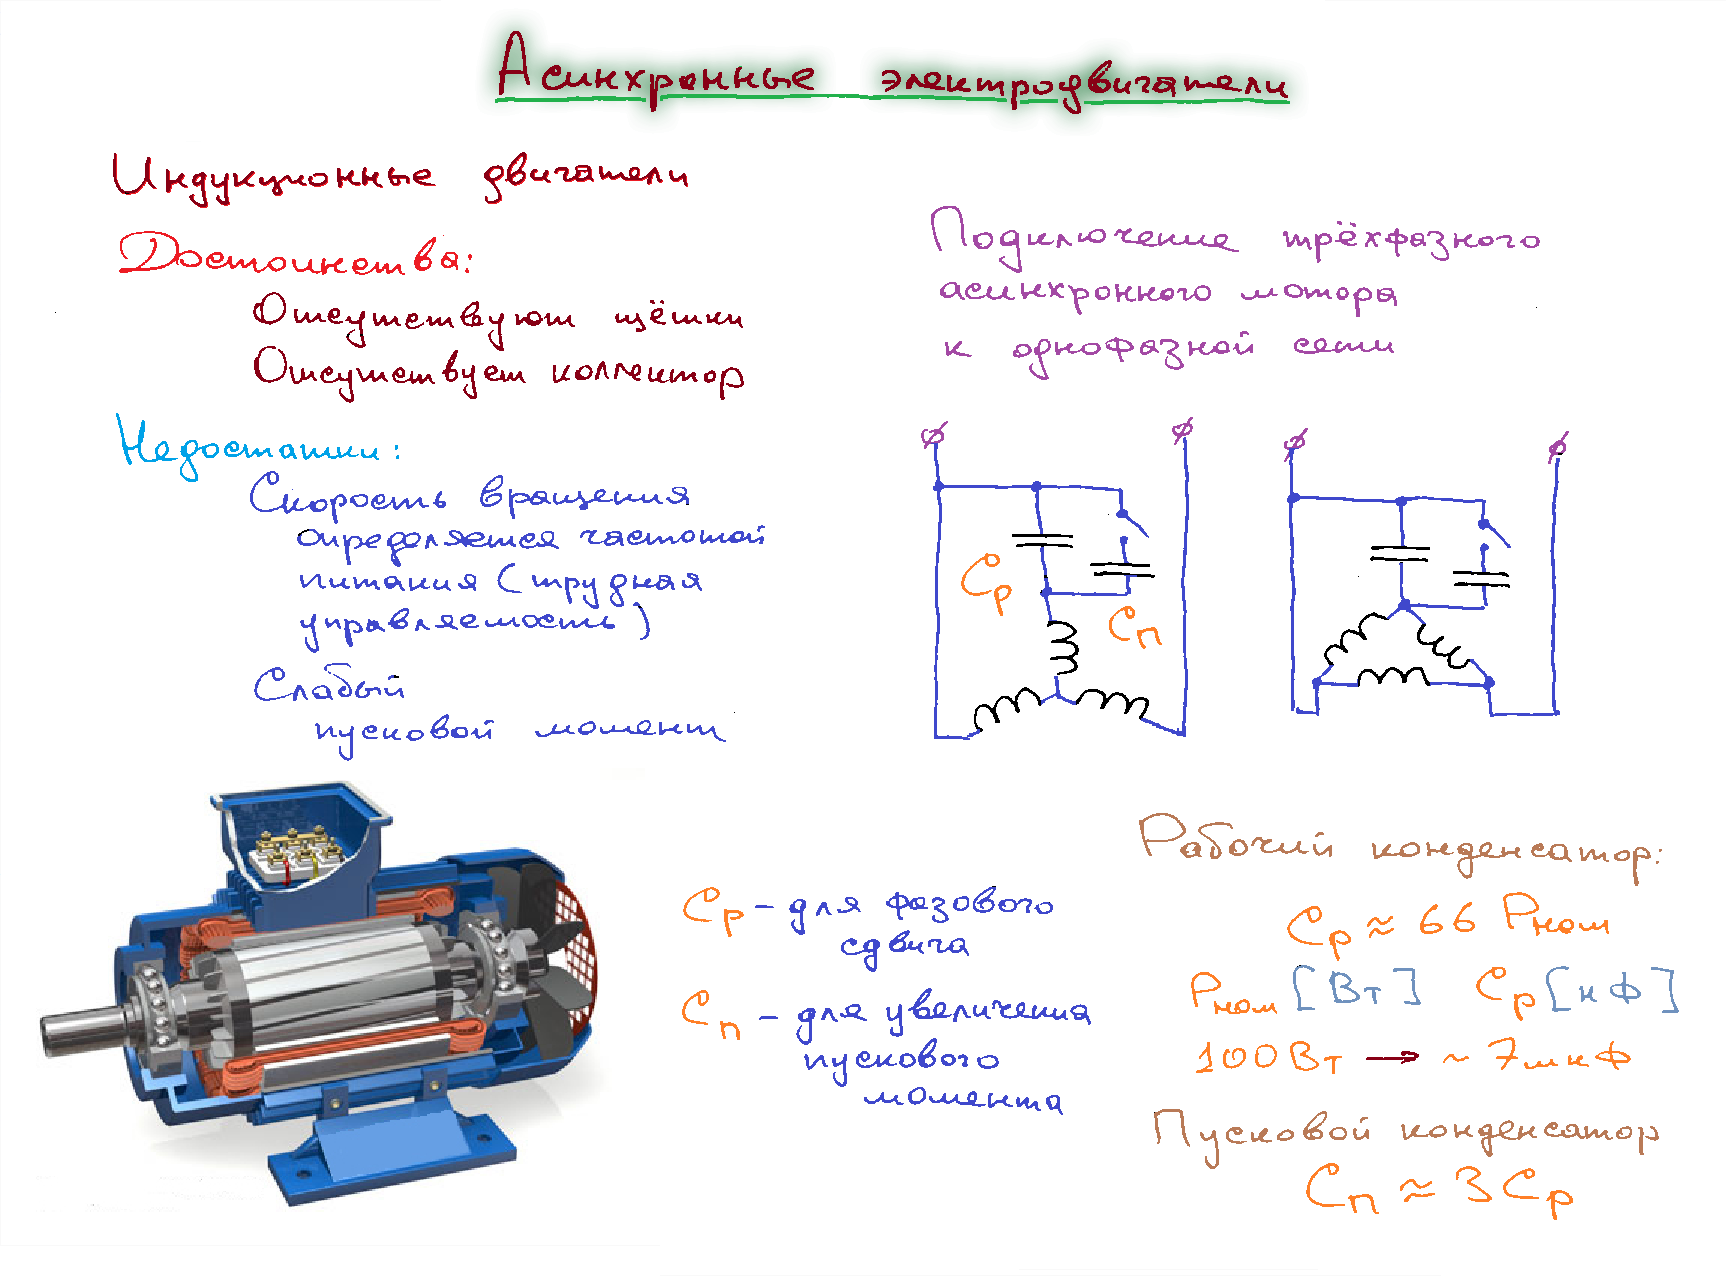 Асинхронные электродвигатели
Индукционные двигатели
Достоинства:
Отсутствуют щётки
Отсутствует коллектор
Недостатки:
Скорость вращения
определяется частотой
питания (трудная
управляемость)
Слабый
пусковой момент
Подключение трёхфазного
асинхронного мотора
к однофазной сети
Cр
Cп
Cр – для фазового
сдвига
Cп – для увеличения
пускового
момента
Рабочий конденсатор:
Cр ≈ 66 Pном
Pном [Вт] Cр [нФ]
100Вт → ~ 7мкФ
Пусковой конденсатор
Cп ≈ 3 Cр